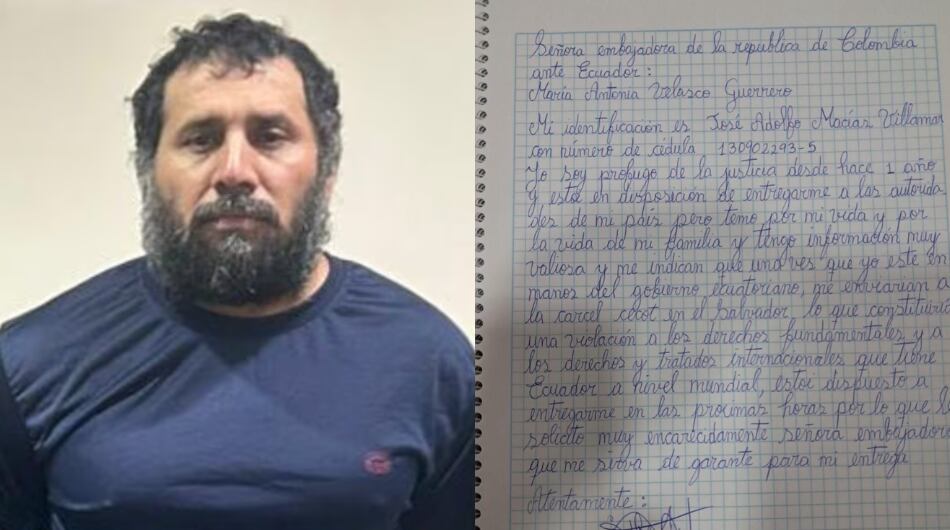 Señora embajadora de la republica de Colombia
ante Ecuador :
María Antonia Velasco Guerrero
Mi identificación es José Adolfo Macías Villamar
con número de cédula 130902293-5
Yo soy profugo de la justicia desde hace 1 año
y estoi en disposición de entregarme a las autorida
des de mi país pero temo por mi vida y por
la vida de mi familia y tengo información muy
valiosa y me indican que una ves que yo este en
manos del gobierno ecuatoriano, me enviarian a
la carcel cecot en el Salvador, lo que constituiria
una violación a los derechos fundamentales y a
los derechos y tratados internacionales que tiene
Ecuador a nivel mundial, estoi dispuesto a
entregarme en las proximas horas por lo que l
solicito muy encarecidamente señora embajadora
que me sirva de garante para mi entrega
Atentamente :